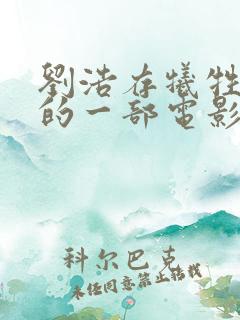 劉浩存犧牲
的一部電影
科尔巴克
未经同意禁止转载